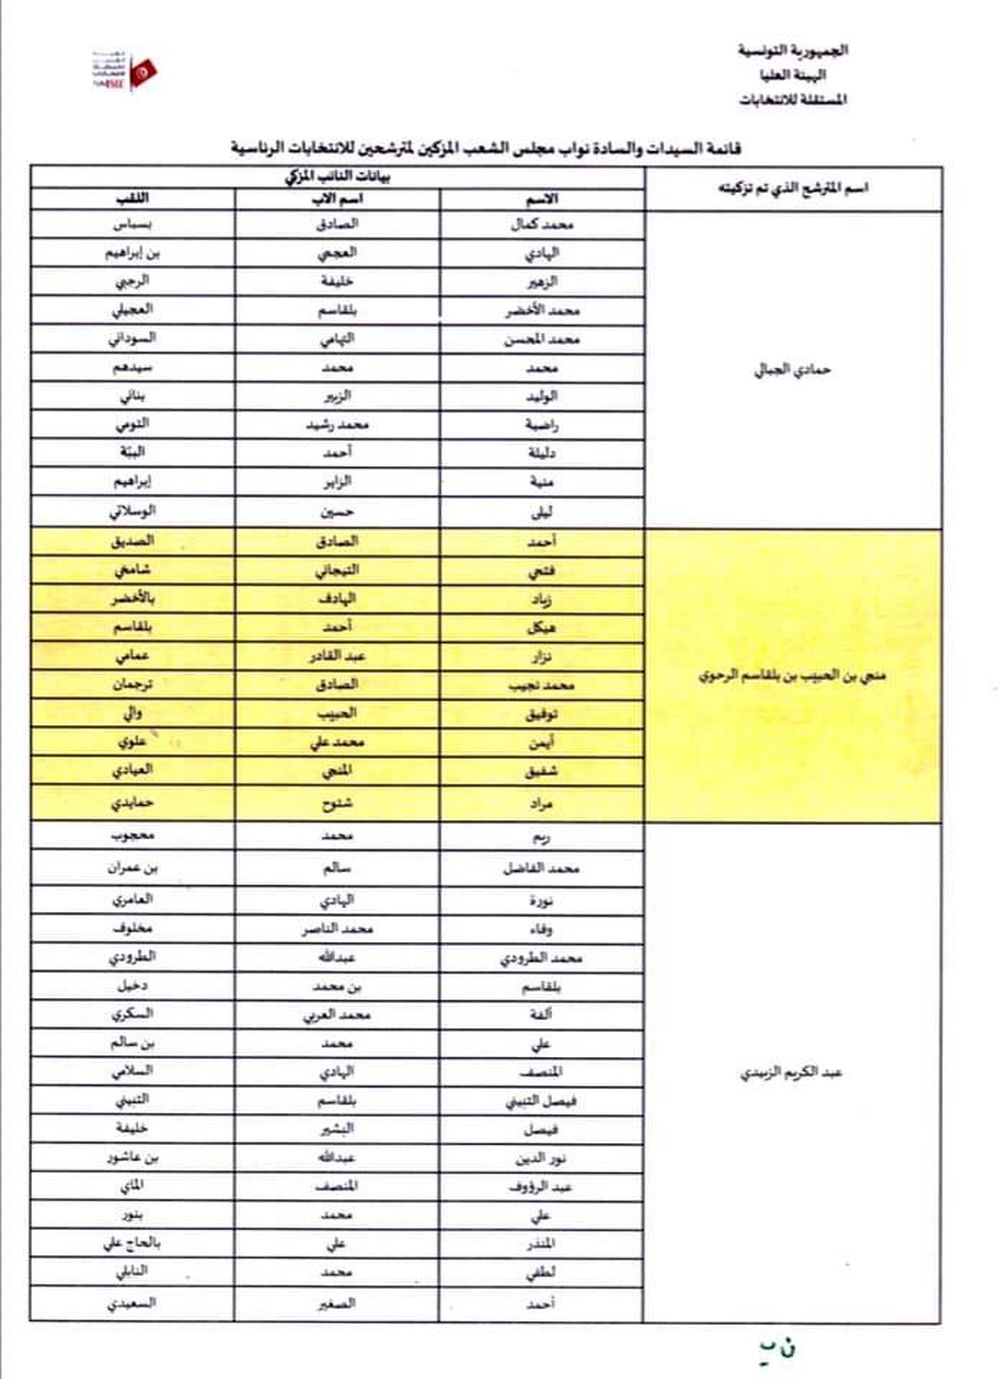 الجمهورية التونسية
الهيئة العليا
المستقلة للانتخابات
ISIE
قائمة السيدات والسادة نواب مجلس الشعب المزكين لمترشحين للانتخابات الرئاسية
اسم المترشح الذي تم تزكيته
بيانات النائب المزكي
الاسم اسم الاب اللقب
محمد كمال الصادق بسباس
الهادي العجمي بن إبراهيم
الزهير خليفة الرجبي
محمد الأخضر بلقاسم العجيلي
محمد المحسن التهامي السوداني
حمادي الجبالي
محمد محمد سيدهم
الوليد الزبير بناني
راضية محمد رشيد التومي
دليلة أحمد الببّة
منية الزاير إبراهيم
ليلى حسين الوسلاتي
أحمد الصادق الصديق
فتحي التيجاني شامخي
زياد الهادف بالأخضر
هيكل أحمد بلقاسم
نزار عبد القادر عمامي
منجي بن الحبيب بن بلقاسم الرحوي
محمد نجيب الصادق ترجمان
توفيق الحبيب والي
أيمن محمد علي علوي
شفيق المنجي العيادي
مراد شتوح حمايدي
ريم محمد محجوب
محمد الفاضل سالم بن عمران
نورة الهادي العامري
وفاء محمد الناصر مخلوف
محمد الطرودي عبدالله الطرودي
بلقاسم بن محمد دخيل
ألفة محمد العربي السكري
علي محمد بن سالم
عبد الكريم الزبيدي
المنصف الهادي السلامي
فيصل التبيني بلقاسم التبيني
فيصل البشير خليفة
نور الدين عبدالله بن عاشور
عبد الرؤوف المنصف الماي
علي محمد بنور
المنذر علي بالحاج علي
لطفي محمد النابلي
أحمد الصغير السعيدي